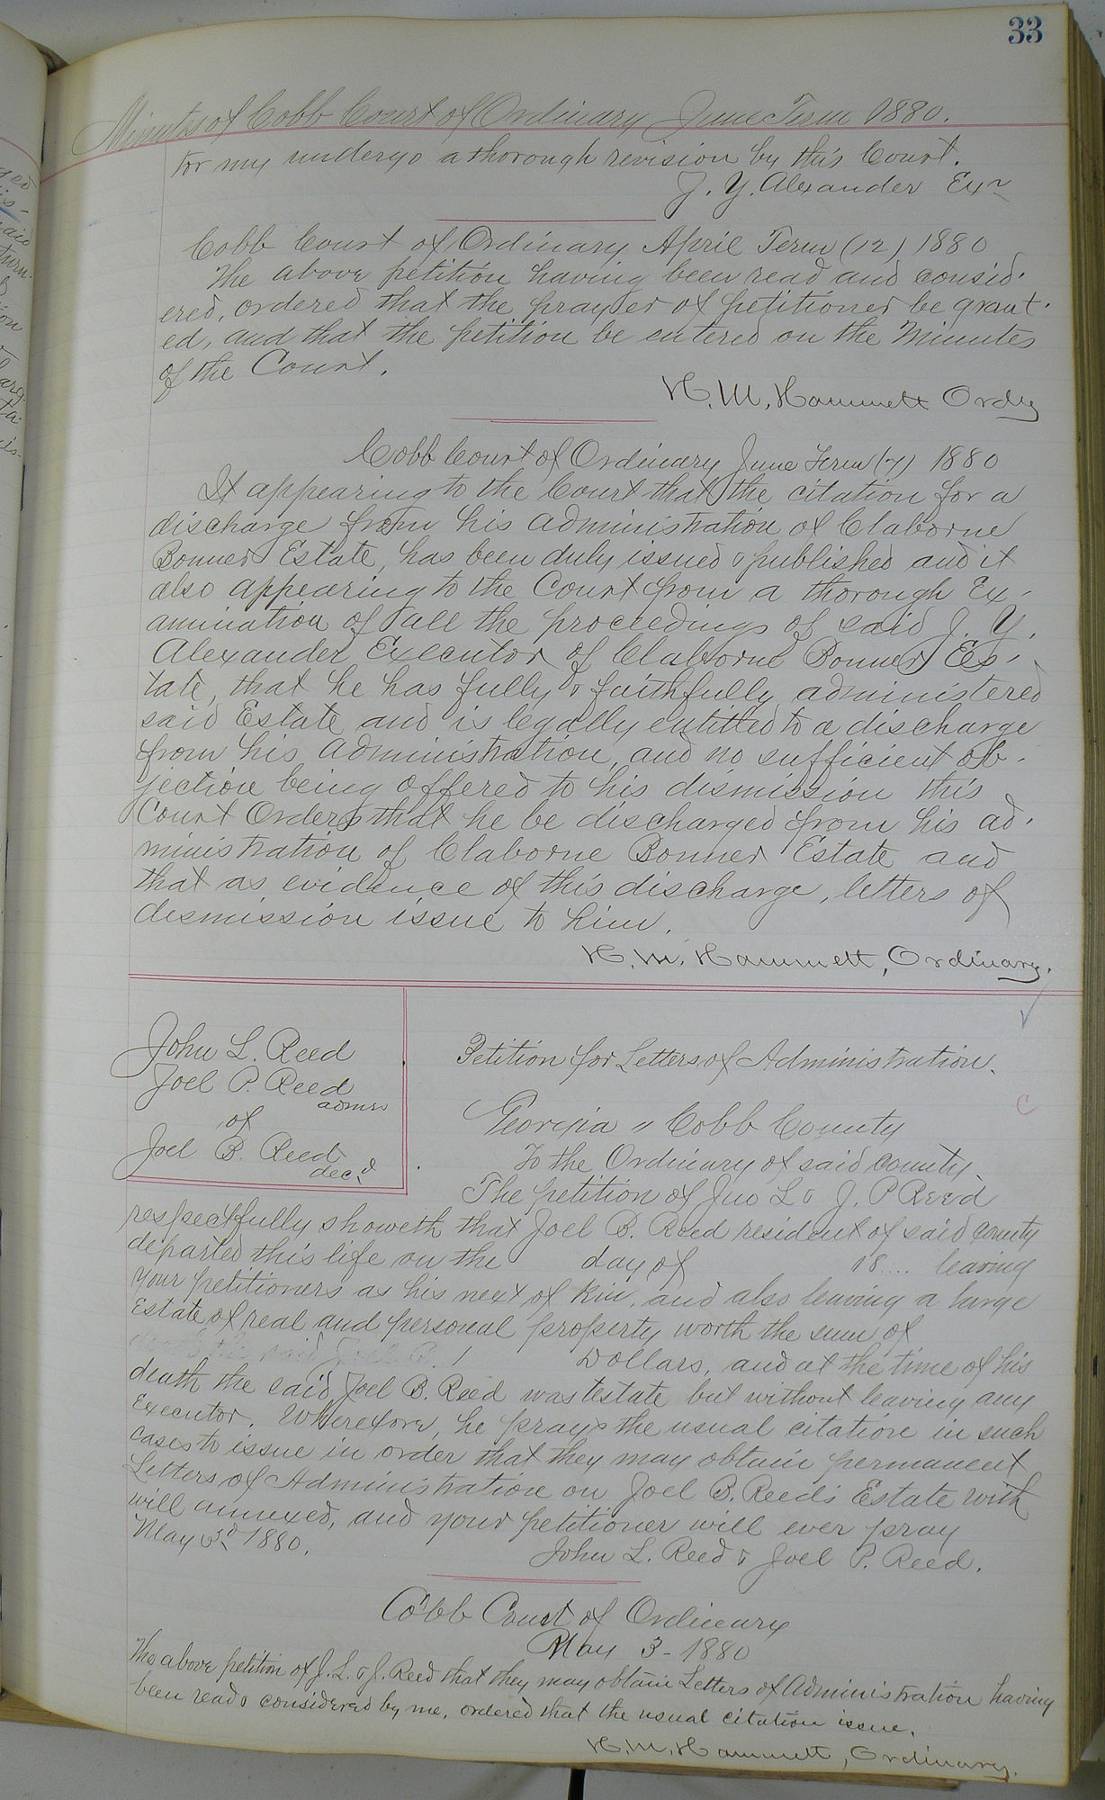 33
Minutes of Cobb Court of Ordinary June Term 1880.
for my undergo a thorough revision by this Court.
J. Y. Alexander Exr
Cobb Court of Ordinary April Term (12) 1880
The above petition having been read and consid-
ered, ordered that the prayer of petitioner be grant-
ed, and that the petition be entered on the Minutes
of the Court.
H. M. Hammett Ordy
Cobb Court of Ordinary June Term (7) 1880
It appearing to the Court that the citation for a
discharge from his administration of Claborne
Bonner Estate, has been duly issued & published and it
also appearing to the Court from a thorough Ex-
amination of all the proceedings of said J. Y.
Alexander Executor of Claborne Bonner Es-
tate, that he has fully & faithfully administered
said Estate and is legally entitled to a discharge
from his administration, and no sufficient ob-
jection being offered to his dismission this
Court Orders that he be discharged from his ad-
ministration of Claborne Bonner Estate and
that as evidence of this discharge, letters of
dismission issue to him.
H. M. Hammett, Ordinary.
John L. Reed
Joel P. Reed
admrs
of
Joel B. Reed
decd
Petition for Letters of Administration.
Georgia " Cobb County
To the Ordinary of said County
The petition of Jno L & J. P Reed
respectfully showeth that Joel B. Reed resident of said county
departed this life on the day of 18... leaving
your petitioners as his next of kin, and also leaving a large
Estate of real and personal property worth the sum of
Dollars, and at the time of his
death the said Joel B. Reed was testate but without leaving any
Executor. Wherefore, he prays the usual citation in such
cases to issue in order that they may obtain permanent
Letters of Administration on Joel B. Reed's Estate with
will annexed, and your petitioner will ever pray
May 3d 1880.
John L. Reed & Joel P. Reed.
Cobb Court of Ordinary
May 3 - 1880
The above petition of J. L. & J. Reed that they may obtain Letters of Administration having
been read & considered by me, ordered that the usual citation issue.
H. M. Hammett, Ordinary.